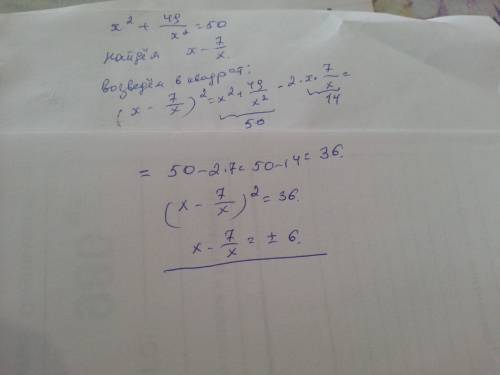 x² + 49/x² = 50
найдём x - 7/x.
возведём в квадрат:
(x - 7/x)² = x² + 49/x² - 2·x·7/x =
50 14
= 50 - 2·7 = 50 - 14 = 36.
(x - 7/x)² = 36.
x - 7/x = ± 6.